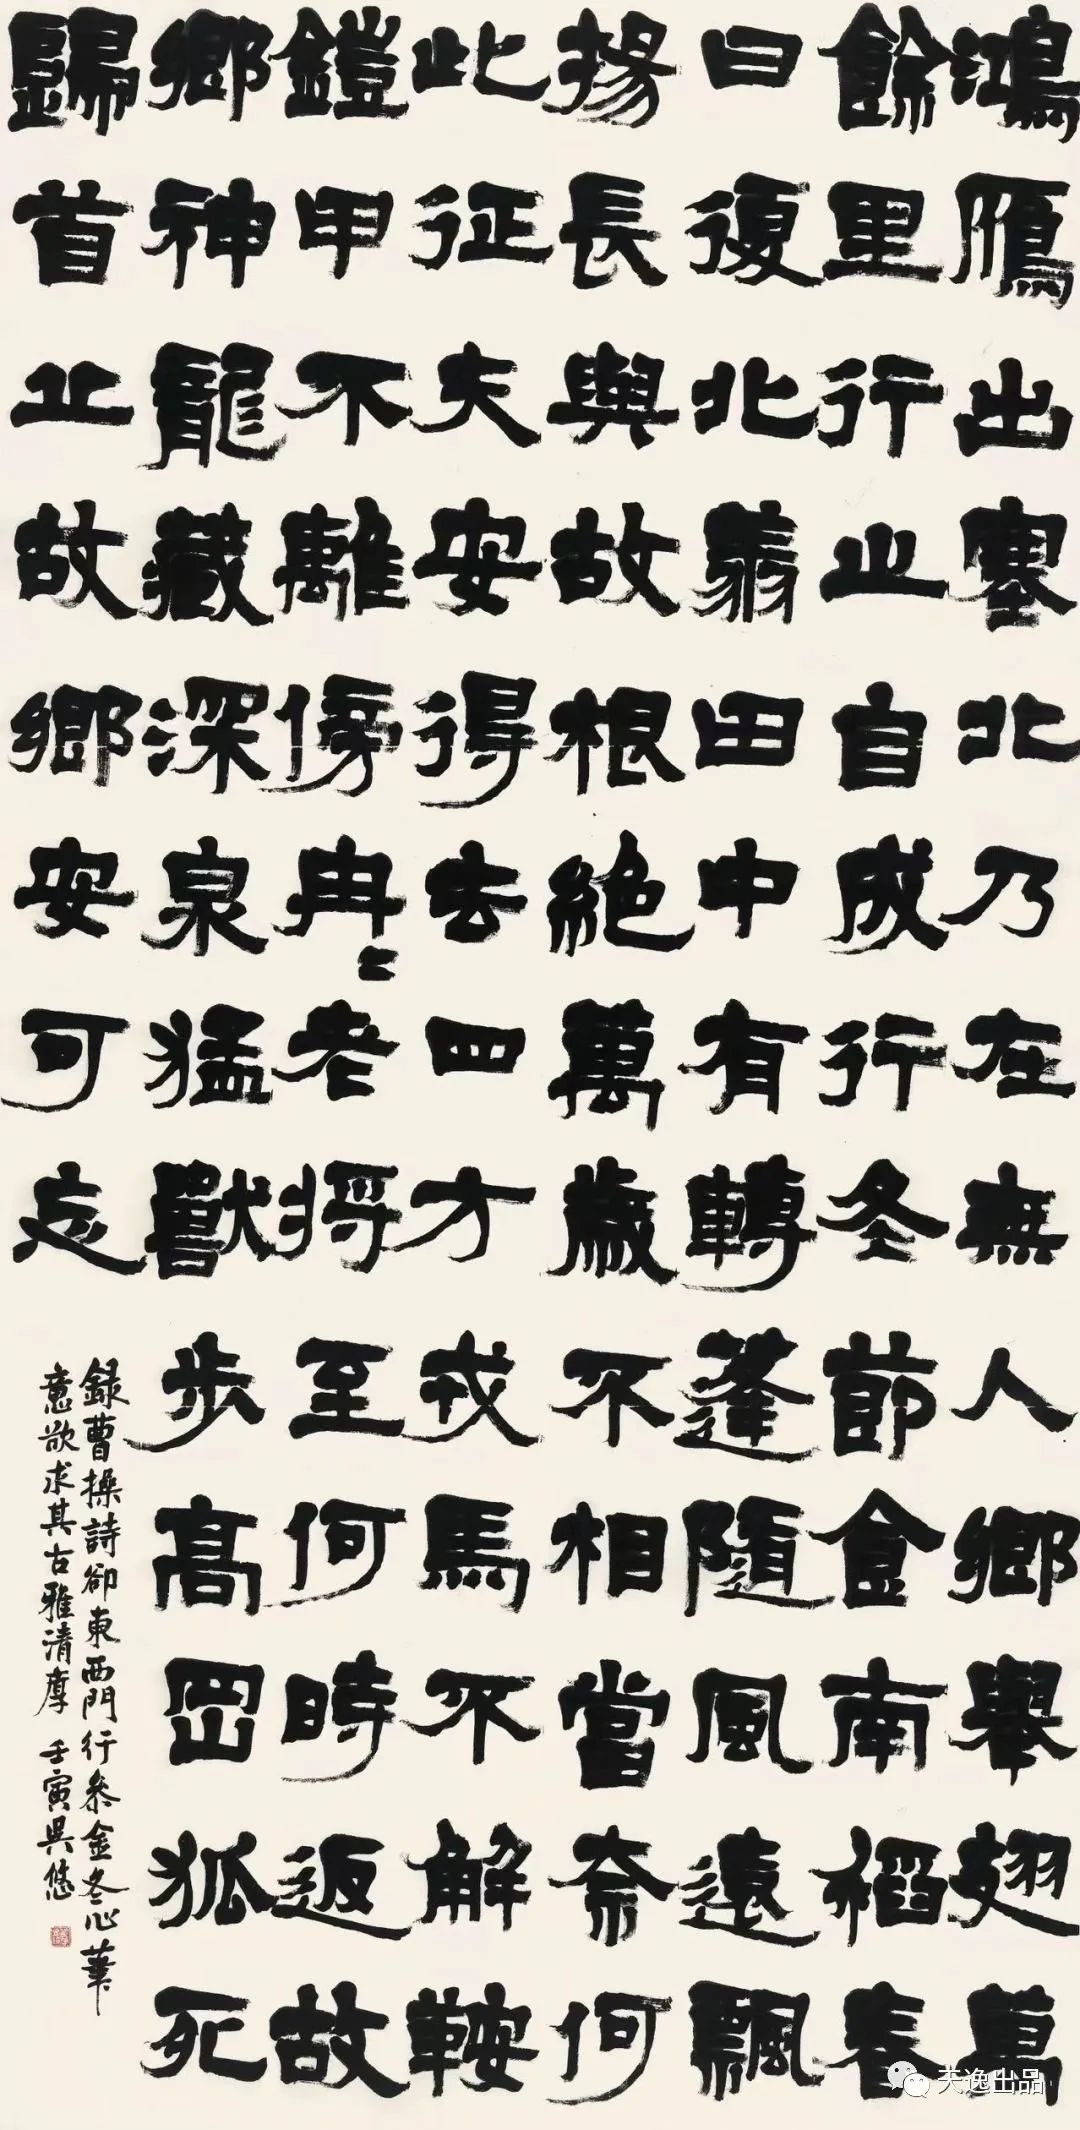 鴻鴈出塞北乃在無人鄉舉翅萬
餘里行止自成行冬節食南稻春
日復北翔田中有轉蓬隨風遠飄
揚長與故根絕萬歲不相當奈何
此征夫安得去四方戎馬不解鞍
鎧甲不離傍冉〻老將至何時返故
鄉神龍藏深泉猛獸步高岡狐死
歸首丘故鄉安可忘
錄曹操詩卻東西門行參金冬心筆
意欲求其古雅清厚 壬寅吳悠
天逸出品